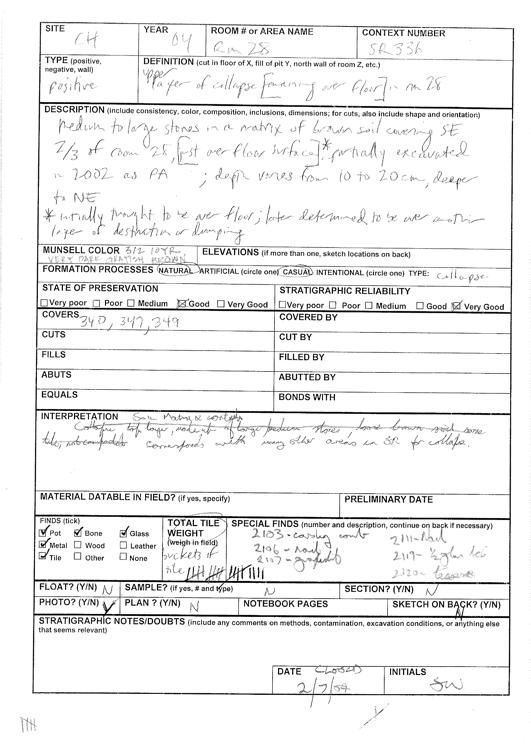 SITE CH YEAR 04 ROOM # or AREA NAME Rm 28 CONTEXT NUMBER SR336
TYPE (positive, negative, wall) positive
DEFINITION (cut in floor of X, fill of pit Y, north wall of room Z, etc.)
upper layer of collapse [remaining over floor] in rm 28
DESCRIPTION (include consistency, color, composition, inclusions, dimensions; for cuts, also include shape and orientation)
medium to large stones in a matrix of brown soil covering SE
2/3 of room 28, [just over floor surface]* partially excavated
in 2002 as PA ; depth varies from 10 to 20cm, deeper
to NE
* initially thought to be over floor; later determined to be over another
layer of destruction or dumping
MUNSELL COLOR 3/2 10YR
VERY DARK GRAYISH BROWN
ELEVATIONS (if more than one, sketch locations on back)
FORMATION PROCESSES NATURAL ARTIFICIAL (circle one) CASUAL INTENTIONAL (circle one) TYPE: collapse
STATE OF PRESERVATION STRATIGRAPHIC RELIABILITY
Very poor Poor Medium Good Very Good Very poor Poor Medium Good Very Good
COVERS 340, 347, 349 COVERED BY
CUTS CUT BY
FILLS FILLED BY
ABUTS ABUTTED BY
EQUALS BONDS WITH
INTERPRETATION Soil Matrix & contents
Collapse top layer, made up of large medium stones, loose brown soil some
tile, not compacted corresponds with many other areas in SR for collapse.
MATERIAL DATABLE IN FIELD? (if yes, specify) PRELIMINARY DATE
FINDS (tick)
Pot Bone Glass
Metal Wood Leather
Tile Other None
TOTAL TILE WEIGHT (weigh in field)
buckets of
tile
SPECIAL FINDS (number and description, continue on back if necessary)
2103- comb 2111-Nail
2106- nail 2119- 1/2
2107- 2120-
FLOAT? (Y/N) N SAMPLE? (if yes, # and type) N SECTION? (Y/N) N
PHOTO? (Y/N) Y PLAN ? (Y/N) N NOTEBOOK PAGES SKETCH ON BACK? (Y/N) N
STRATIGRAPHIC NOTES/DOUBTS (include any comments on methods, contamination, excavation conditions, or anything else
that seems relevant)
DATE CLOSED INITIALS
2/7/04 SW